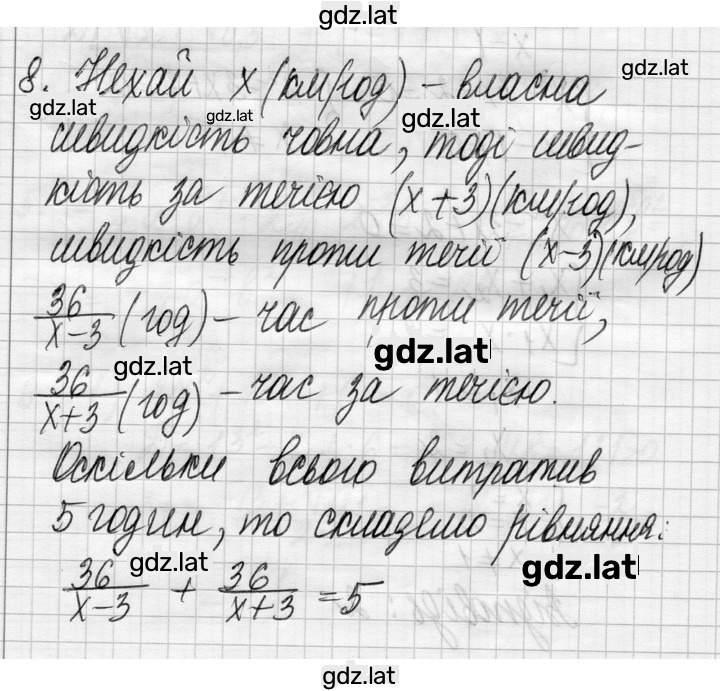 gdz.lat
8. Нехай x (км/год) – власна gdz.lat
gdz.lat gdz.lat gdz.lat
швидкість човна, тоді швид-
кість за течією (x+3)(км/год),
швидкість проти течії (x-3)(км/год)
36/(x-3) (год) – час проти течії,
gdz.lat gdz.lat
36/(x+3) (год) – час за течією.
Оскільки всього витратив
5 годин, то складемо рівняння:
gdz.lat gdz.lat
36/(x-3) + 36/(x+3) = 5
gdz.lat